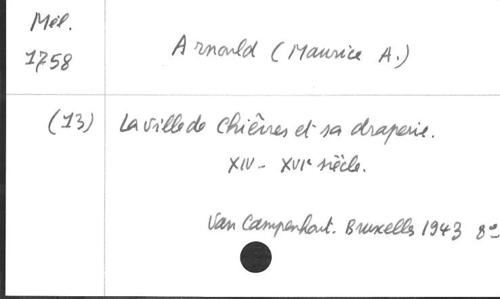 Mél.
1758
Arnould (Maurice A.)
(13) La ville de Chièvres et sa draperie.
XIV - XVIe siècle.
Van Campenhout. Bruxelles 1943 8°